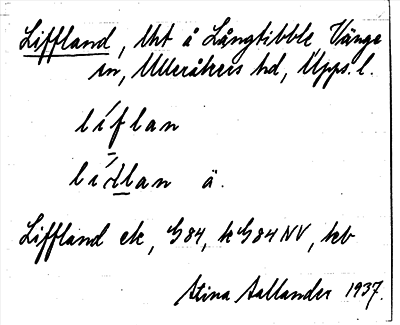 Liffland, Uht å Långtibble, Vänge
sn, Ulleråkers hd, Upps. l.
líflan
lídlan ä.
Liffland ek, G 84, k G 84 NV, kb
Stina Aallander 1937.